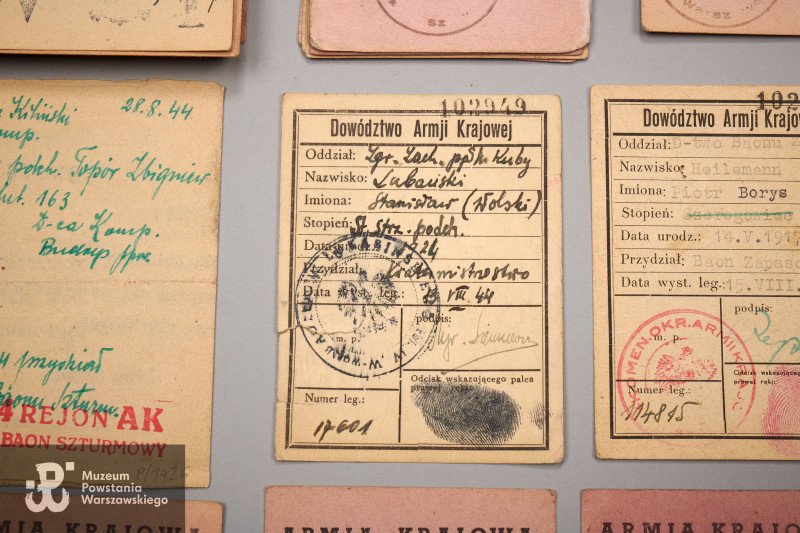 sz
Warsz
Kiliński 28.8.44
omp.
podch. Topór Zbigniew
lut. 163
D-ca Komp.
przydział
4 REJON AK
BAON SZTURMOWY
P/1426
102949
Dowództwo Armji Krajowej
Oddział: Zgr. Zach. ppłk. Kuby
Nazwisko: Lubański
Imiona: Stanisław (Wolski)
Stopień: St. strz. podch.
Data urodz.: 1924
Przydział:
Data wyst. leg.: VIII. 44
m. p.
podpis:
Odcisk wskazującego palca
prawej ręki:
Numer leg.:
17601
102
Dowództwo Armji Krajow
Oddział: D-two Baonu
Nazwisko: Heilemann
Imiona: Piotr Borys
Stopień: szeregowiec
Data urodz.: 14.V.191
Przydział: Baon Zapaso
Data wyst. leg.: 15.VIII.
podpis:
m. p.
Odcisk wskazując
prawej ręki:
Numer leg.:
114815
Muzeum
Powstania
Warszawskiego
ARMIA KRAJOWA
ARMIA KRAJOWA
ARMIA KRAJOWA